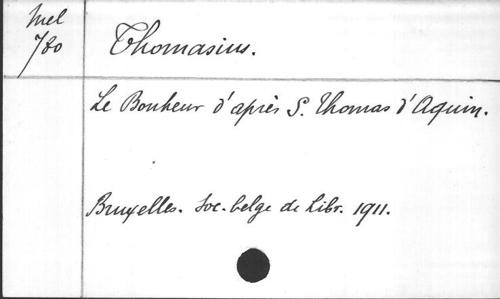 Mel
780
Thomasius.
Le Bonheur d'après S. Thomas d'Aquin.
Bruxelles. Soc. belge de Libr. 1911.